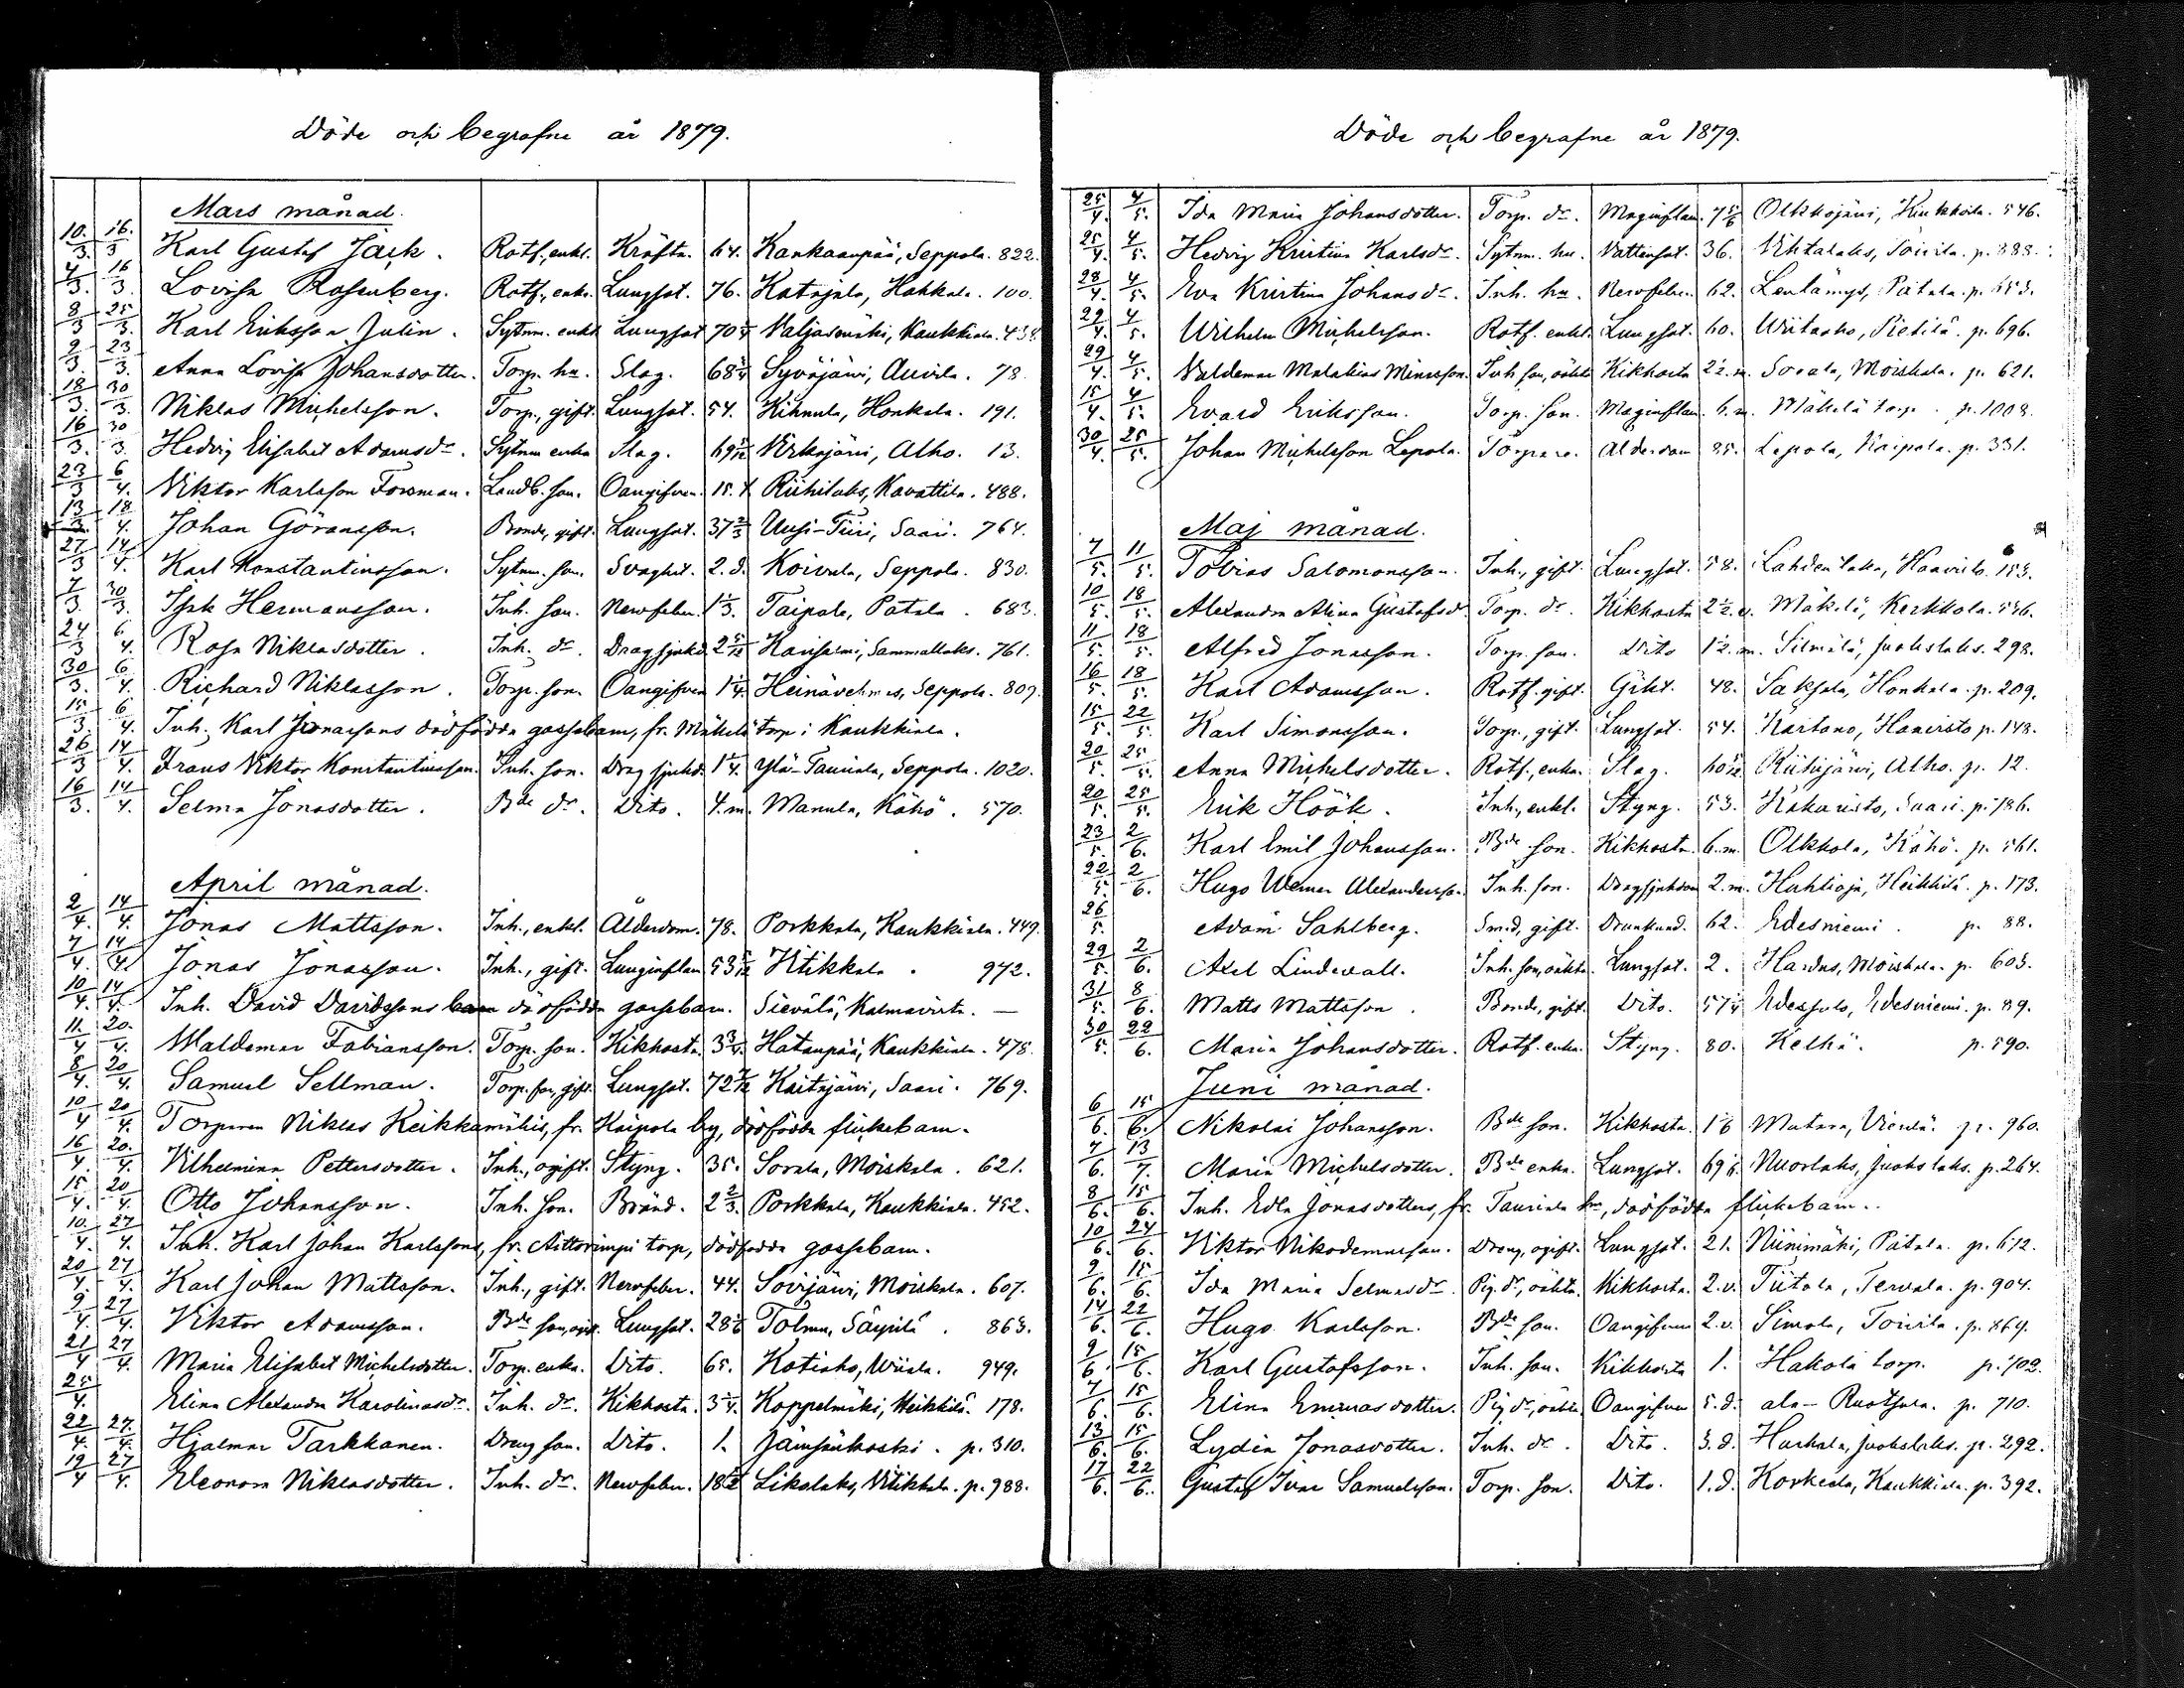 Döde och begrafne år 1879.
Mars månad.
10/3. 16./3 Karl Gustaf Jack. Rotf., enkl. Kräfta. 64. Kankaanpää, Seppola. 822.
4/3. 16/3. Lovisa Rosenberg. Rotf., enka. Lungsot. 76. Katajala, Hakkala. 100.
8/3 25/3. Karl Eriksson Julin. Sytnm. enkl. Lungsot 70 Valjasmäki, Kaukkiala.
9/3. 23/3. Anna Lovisa Johansdotter. Torp. hu. Slag. 68 3/4 Syväjärvi, Auvila. 78.
18/3. 30/3. Niklas Michelsson. Torp., gift. Lungsot. 54. Kihnula, Honkala. 191.
16/3. 30/3. Hedvig Elisabet Adamsdr. Sytnm enka Slag. 69 Virkajärvi, Alho. 13.
23/3 6/4. Viktor Karlsson Forsman. Landb. son. Oangifven. 15. Riihilaks, Kavattila. 488.
13/3. 18/4. Johan Göransson. Bonde, gift. Lungsot. 37 2/3 Uusi-Tiiri, Saari. 764.
27/3 14/4. Karl Konstantinsson. Sytnm. son. Svaghet. 2. d. Koivula, Seppola. 830.
7/3. 30/3. Isak Hermansson. Inh. son. Nervfeber. 1 1/3. Taipale, Patala. 683.
24/3 6/4. Rosa Niklasdotter. Inh. dr. Dragsjukd. 2 5/12 Kaisalmi, Sammallaks. 761.
30/3. 6/4. Richard Niklasson. Torp. son. Oangifven 1 1/4. Heinävehmas, Seppola. 807.
15/3 6/4. Inh. Karl Jonassons dödfödda gossebarn, fr. Mäkelä torp i Kaukkiala.
26/3 14/4. Frans Viktor Konstantinsson. Inh. son. Dragsjukd. 1 1/4. Ylä-Tauriala, Seppola. 1020.
16/3. 14/4. Selma Jonasdotter. Bde dr. Dito. 4. m. Manula, Kähö. 570.
April månad.
2/4. 14/4. Jonas Mattsson. Inh., enkl. Ålderdom. 78. Porkkala, Kaukkiala. 449.
7/4. 14/4 Jonas Jonasson. Inh., gift. Lunginflam 53 Vitikkala. 972.
10/4. 14/4. Inh. David Davidssons dödfödda gossebarn. Sievälä, Kalmavirta. —
11./4 20./4. Waldemar Fabiansson. Torp. son. Kikhosta. 3 3/4. Hatanpää, Kaukkiala. 478.
8/4. 20/4. Samuel Sellman. Torp. son, gift. Lungsot. 72 Kaitajärvi, Saari. 769.
10/4 20/4. Torparen Niklas Keikkamäkis, fr. Kaipola by, dödfödda flickebarn.
16/4. 20./4. Vilhelmina Pettersdotter. Inh., ogift. Styng. 35. Sorala, Moiskala. 621.
15/4. 20/4. Otto Johansson. Inh. son. Bränd. 2 2/3. Porkkala, Kaukkiala. 452.
10./4. 27/4. Inh. Karl Johan Karlssons, fr. torp, dödfödda gossebarn.
20/4. 27/4. Karl Johan Mattsson. Inh., gift. Nervfeber. 44. Sovijärvi, Moiskala. 607.
9/4. 27/4. Viktor Adamsson. Bde son, ogift. Lungsot. 28 Tolmu, Säyilä. 863.
21/4 27/4. Maria Elisabet Michelsdotter. Torp. enka. Dito. 65. Kotiaho, Wiiala. 949.
25/4. Elina Alexandra Karolinasdr. Inh. dr. Kikhosta. 3 1/4. Koppelmäki, Heikkilä. 178.
22/4. 27./4. Hjalmar Tarkkanen. Dreng son. Dito. 1. Jämsänkoski. p. 310.
19/4 27/4. Eleonora Niklasdotter. Inh. dr. Nervfeber. 18 1/2 Likolaks, Vitikkala. p. 988.
Döde och begrafne år 1879.
25/4. 4/5. Ida Maria Johansdotter. Torp. dr. Maginflam. 7 5/6 Olkkojärvi, 546.
25/4. 4/5. Hedvig Kristina Karlsdr. Sytnm. hu. Vattensot. 36. Vihtalaks, Toivila. p. 888.
28/4. 4/5. Eva Kristina Johansdr. Inh. hu. Nervfeber. 62. Patala. p. 653.
29/4. 4/5. Wilhelm Michelsson. Rotf. enkl. Lungsot. 60. Wiitaaho, Pietilä. p. 696.
29/4. 4/5. Valdemar Malakias Minasson. Inh son, oäkta Kikhosta 2 1/2. m. Sorala, Moiskala. p. 621.
15/4. 4/5. Evard Eriksson. Torp. son. Maginflam. 6. m. Mäkelä torp. p. 1008.
30/4. 25/5. Johan Michelsson Lepola. Torpare. Alderdom 85. Lepola, Kaipola. p. 331.
Maj månad.
7/5. 11/5. Tobias Salomonsson. Inh., gift. Lungsot. 58. Lahdentaka, Haavisto. 153.
10/5. 18/5. Alexandra Alina Gustafsdr. Torp. dr. Kikhosta 2 1/2. Mäkelä, Kerkkola. 536.
11/5. 18/5. Alfred Jonasson. Torp. son. Dito 1 1/2. m. Silmälä, Juokslaks. 298.
16/5. 18/5. Karl Adamsson. Rotf. gift. Gikt. 48. Saksala, Honkala. p. 209.
15/5. 22/5. Karl Simonsson. Torp., gift. Lungsot. 54. Kartano, Haavisto p. 148.
20/5. 25/5. Anna Michelsdotter. Rotf., enka. Slag. 60 Riihijärvi, Alho. p. 12.
20/5. 25/5. Erik Höök. Inh., enkl. Styng. 53. Kakaristo, Saari. p. 786.
23/5. 2/6. Karl Emil Johansson. Bde son. Kikhosta. 6. m. Olkkola, Kähö. p. 561.
22/5. 2/6. Hugo Werner Alexandersson. Inh. son. Dragsjukdom 2. m. Huhtioja, Heikkilä. p. 173.
26/5. Adam Sahlberg. Smed, gift. Drunknad. 62. Edesniemi. p. 88.
29/5. 2/6. Axel Lindevall. Inh. son, oäkta. Lungsot. 2. Moiskala. p. 603.
31/5. 8/6. Matts Mattsson. Bonde, gift. Dito. 57 1/4 Edessalo, Edesniemi. p. 89.
30/5. 22/6. Maria Johansdotter. Rotf. enka. Styng. 80. Kelhä. p. 590.
Juni månad.
6/6. 15/6. Nikolai Johansson. Bde son. Kikhosta. 1 Matara, Vierelä. p. 960.
7/6. 13/7. Maria Michelsdotter. Bde enka. Lungsot. 69 Nuorlaks, Juokslaks. p. 264.
8/6. 15/6. Inh. Edla Jonasdotters, fr. Tauriala, dödfödda flickebarn.
10/6. 24/6. Viktor Nikodemusson. Dreng, ogift. Lungsot. 21. Niinimäki, Patala. p. 672.
9/6. 15/6. Ida Maria Selmasdr. Pig. dr, oäkta. Kikhosta. 2. v. Tiitola, Tervala. p. 904.
14/6. 22/6. Hugo Karlsson. Bde son. Oangifven 2. v. Simola, Toivila. p. 864.
9/6. 15/6. Karl Gustafsson. Inh. son. Kikhosta 1. Hakola torp. p. 702.
7/6. 15/6. Elina Emmasdotter. Pig dr, oäkta Oangifven 5. d. ala-Ruotsula. p. 710.
13/6. 15/6. Lydia Jonasdotter. Inh. dr. Dito. 3. d. Harhala, Juokslaks. p. 292.
17/6. 22/6. Gustaf Ivar Samuelsson. Torp. son. Dito. 1. d. Korkeala, Kaukkiala. p. 392.